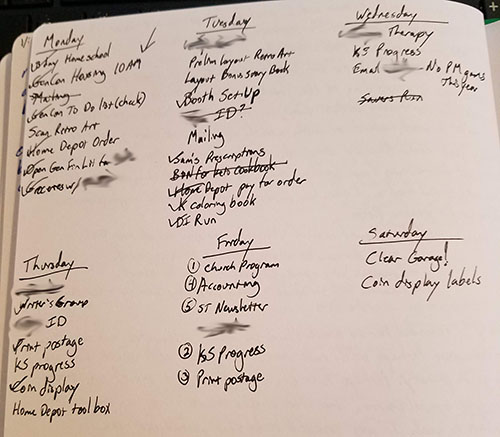 Monday
✓ Day Homeschool
✓ GenCon Housing 10 AM
Mailing
✓ GenCon To Do list (check)
Scan Retro Art
✓ Home Depot Order
✓ Open Gen Fin Lit for
✓ Groceries w/
Tuesday
Prelim layout Retro Art
Layout Bonus story Book
✓ Booth Set-Up
ID?
Mailing
✓ Sam's Prescriptions
BON for kets cookbook
✓ Home Depot pay for order
✓ K coloring book
✓ DI Run
Wednesday
Therapy
KS Progress
Email No PM games
This year
Savers Run
Thursday
Writer's Group
ID
✓ Print postage
KS progress
✓ Coin display
Home Depot toolbox
Friday
① Church Program
④ Accounting
⑤ ST Newsletter
② KS Progress
③ Print postage
Saturday
Clear Garage!
Coin display labels